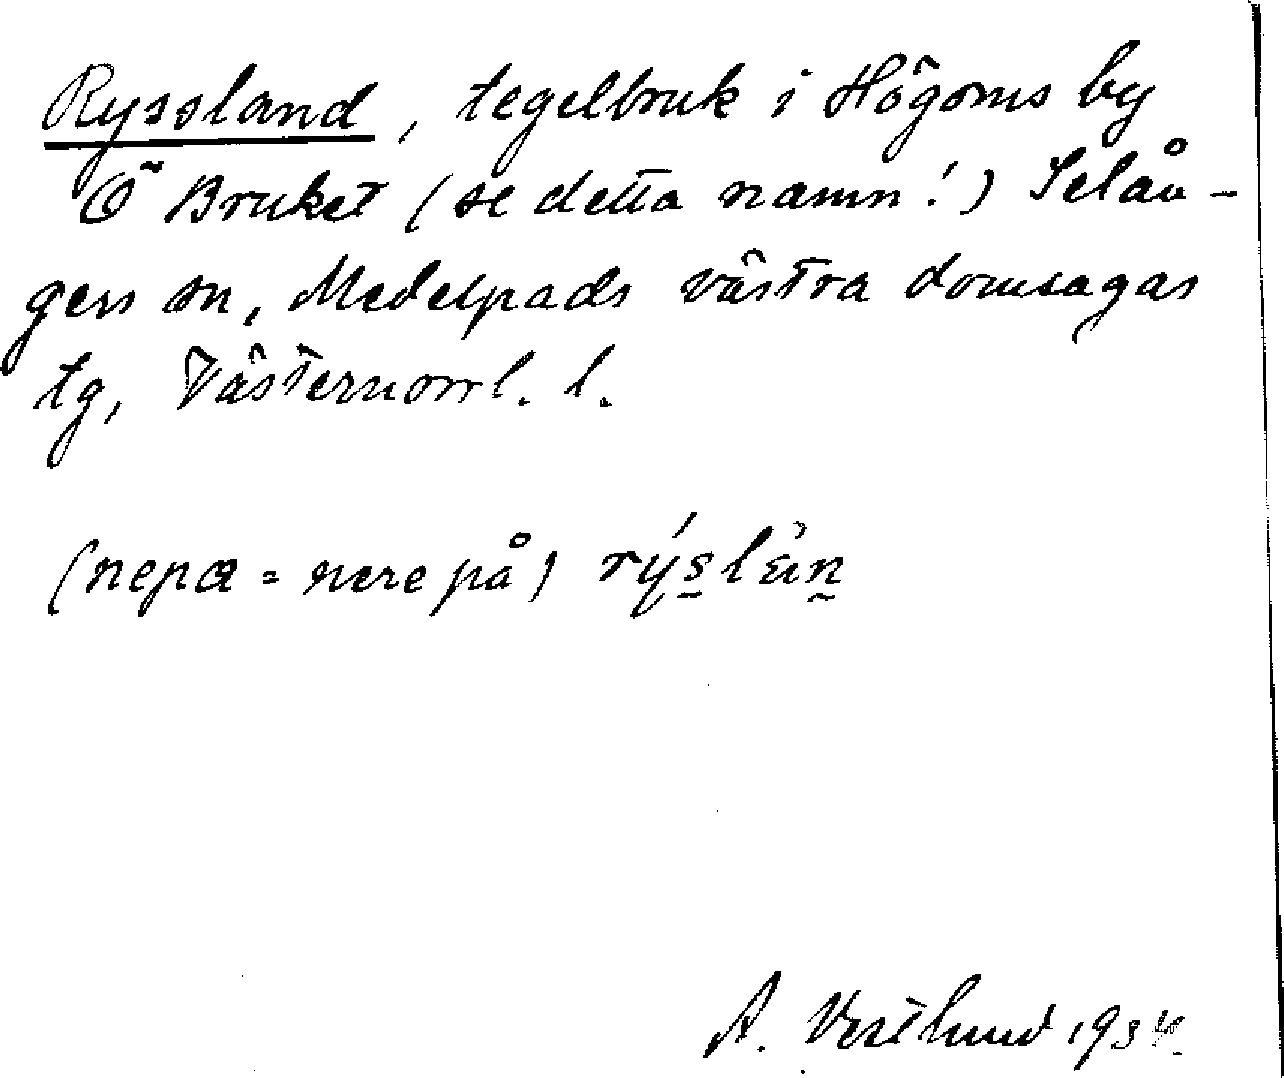 Ryssland, tegelbruk i Högoms by
Ö Bruket (se detta namn!) Selån-
gers sn, Medelpads västra domsagas
tg, Västernorrl. l.
(nepa = nere på)
A. Vestlund 1934.